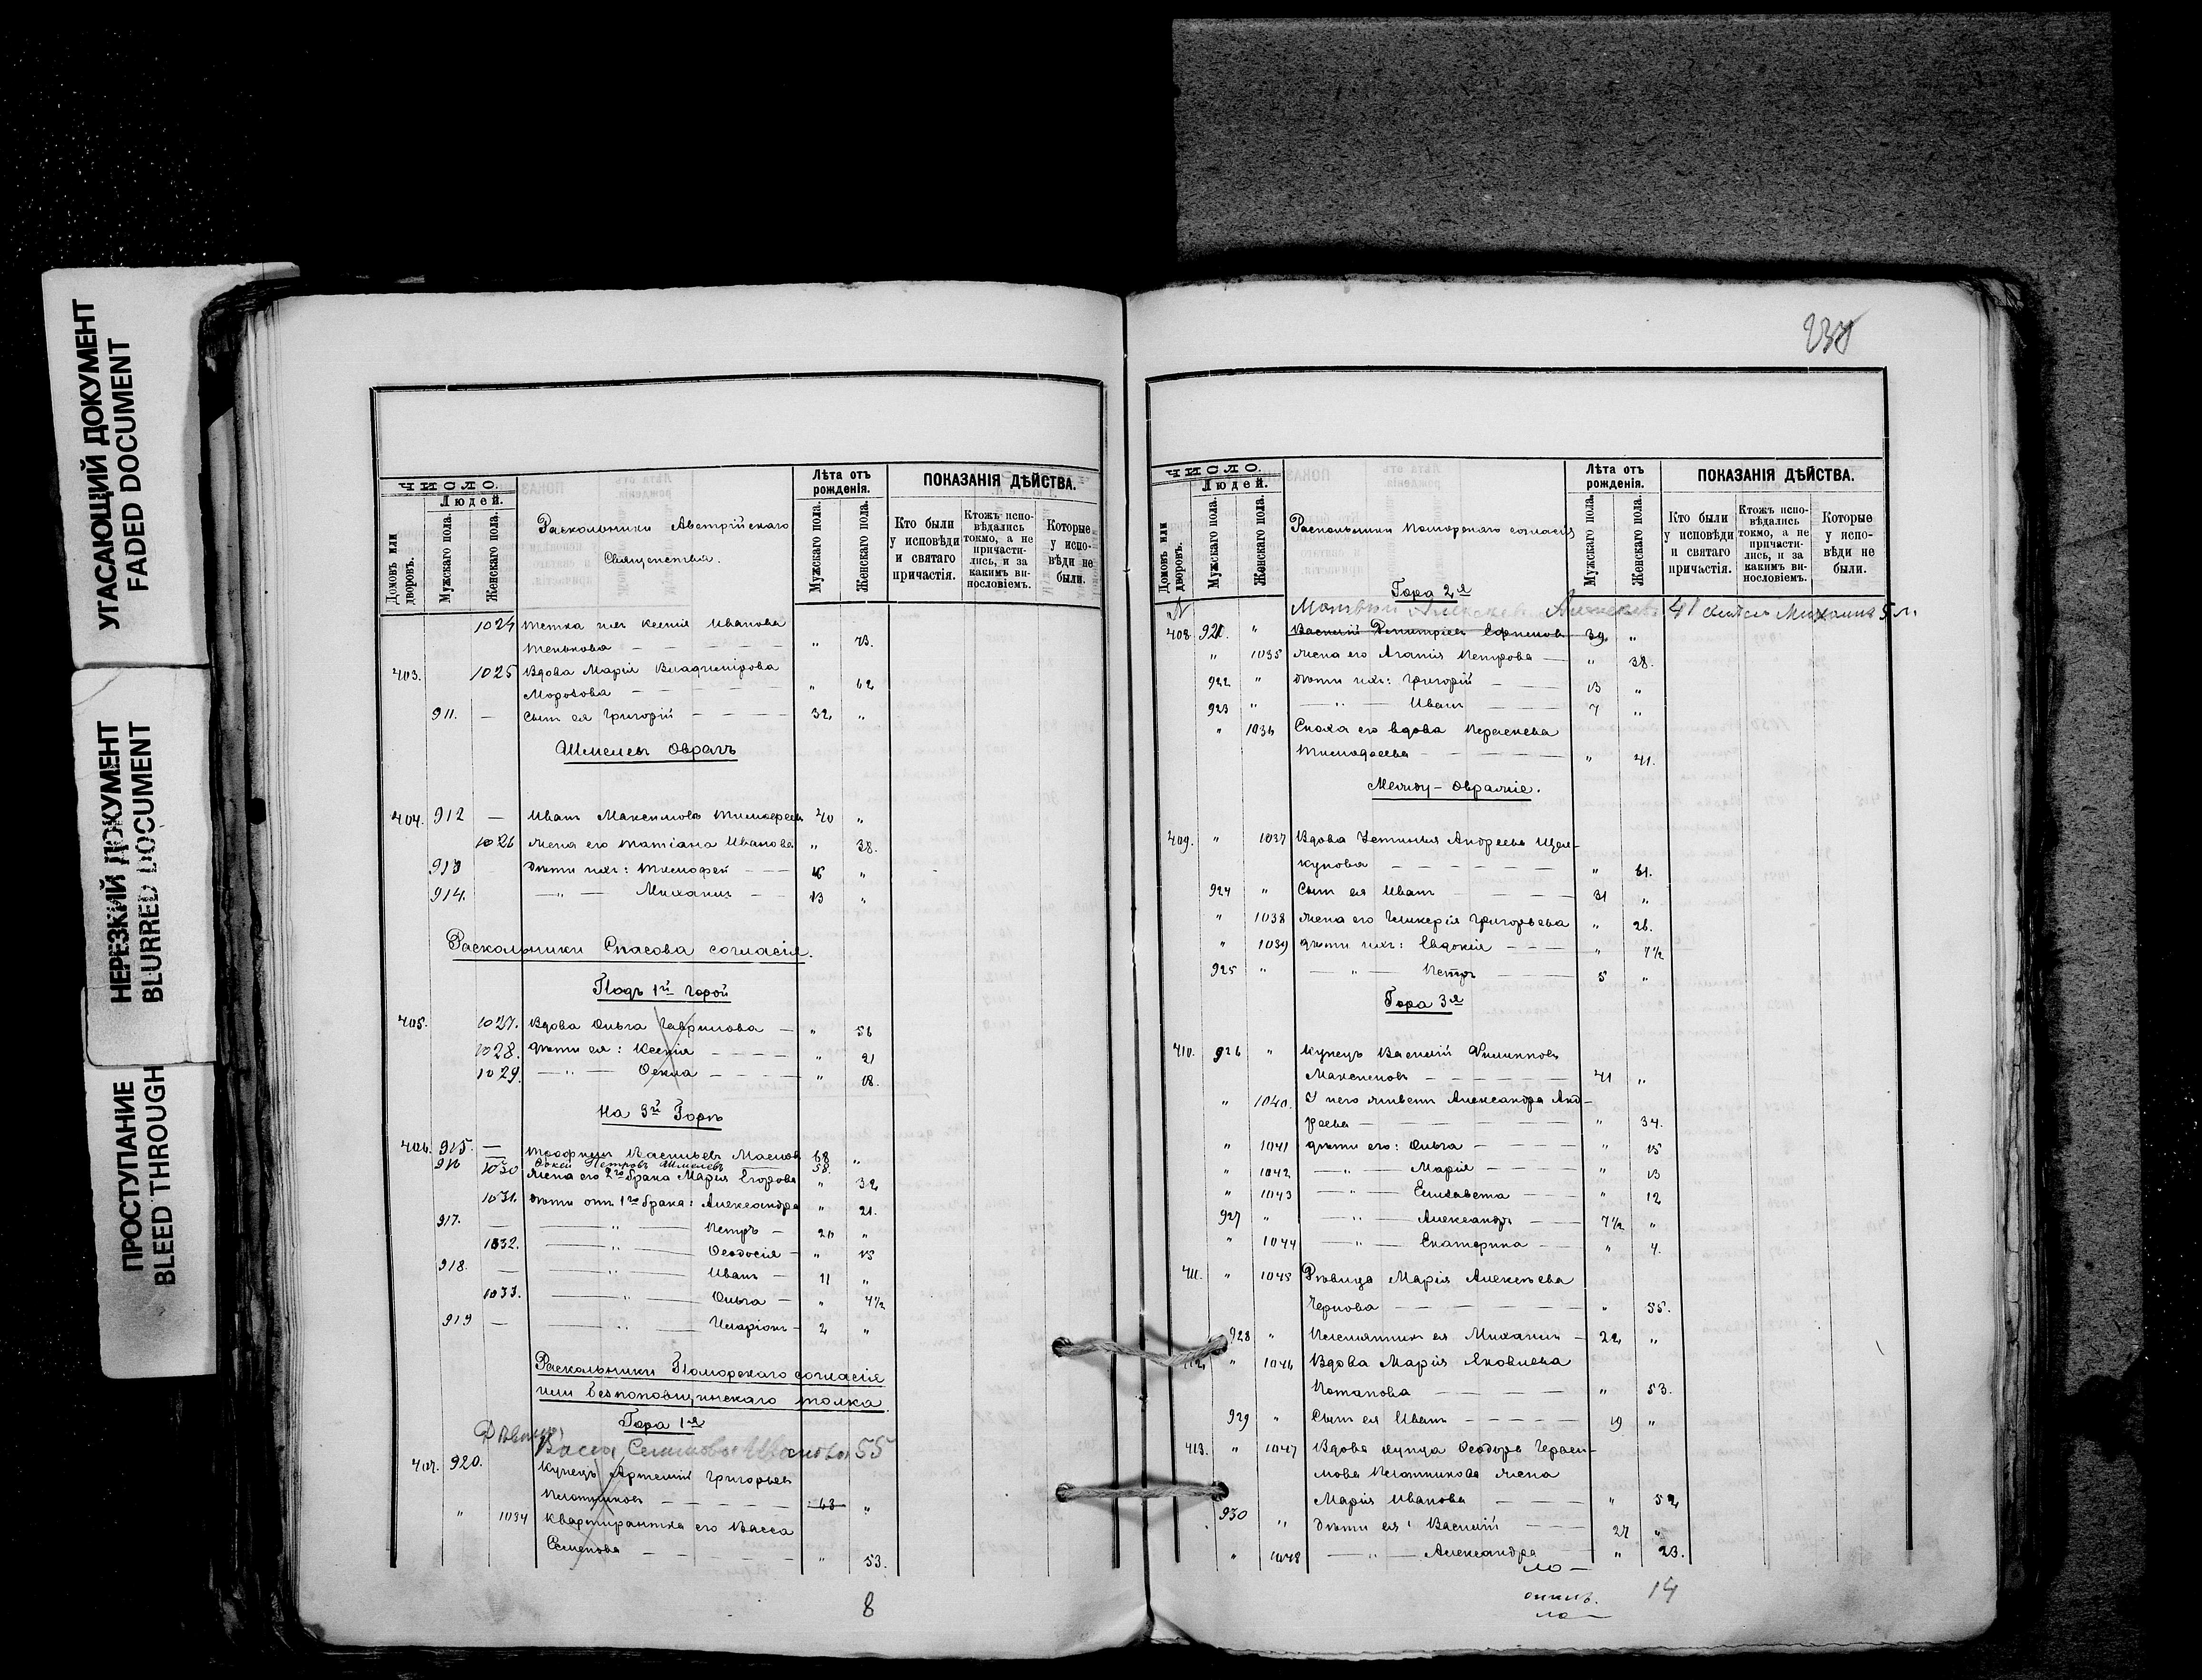 УГАСАЮЩИЙ ДОКУМЕНТ
FADED DOCUMENT
НЕРЕЗКИЙ ДОКУМЕНТ
BLURRED DOCUMENT
ПРОСТУПАНИЕ
BLEED THROUGH
ЧИСЛО.
Людей.
Домовъ или дворовъ.
Мужскаго пола.
Женскаго пола.
Раскольники Австрійскаго
Священства.
Лѣта отъ рожденія.
Мужскаго пола.
Женскаго пола.
ПОКАЗАНІЯ ДѢЙСТВА.
Кто были у исповѣди и святаго причастія.
Ктожъ испо-вѣдались токмо, а не причасти-лись, и за какимъ ви-нословіемъ.
Которые у испо-вѣди не были.
1024 тетка ихъ Ксенія Иванова
" 73.
403. 1025 Вдова Марія Владимірова
Морозова " 62
911. — Сынъ ея Григорій 32 "
Шмелевъ Оврагъ
404. 912 — Иванъ Максимовъ 40 "
1026 Жена его Татіана Иванова " 38.
913 Дѣти ихъ: Тимофей 16 "
914. —"— Михаилъ 13 "
Раскольники Спасова согласія.
Подъ 1й горой
405. 1027. Вдова Ольга Гаврилова — " 56
1028. Дѣти ея: Ксенія " 21
1029. —"— Ѳекла " 18.
На 3й Горѣ
406. 915. — Васильевъ Масловъ 68 "
916 1030 Петровъ Шмелевъ 58.
Жена его 2го брака Марія Егорова " 32
1031. Дѣти отъ 1го брака: Александра " 21.
917. — —"— Петръ — 20 "
1032. —"— Ѳеодосія — " 15
918. — —"— Иванъ — 11 "
1033. —"— Ольга — " 4½
919 — —"— Иларіонъ — 2 "
Раскольники Поморскаго согласія
или безпоповщинскаго толка.
Гора 1я
Дѣвица
Васса Семенова Иванова 55
407. 920. Купецъ Артемій Григорьевъ
Плотниковъ 63 "
" 1034 Квартирантка его Васса
Семенова " 53.
8
238
ЧИСЛО.
Людей.
Домовъ или дворовъ.
Мужскаго пола.
Женскаго пола.
Раскольники Поморскаго согласія
Лѣта отъ рожденія.
Мужскаго пола.
Женскаго пола.
ПОКАЗАНІЯ ДѢЙСТВА.
Кто были у исповѣди и святаго причастія.
Ктожъ испо-вѣдались токмо, а не причасти-лись, и за какимъ ви-нословіемъ.
Которые у испо-вѣди не были.
Гора 2я
41 Михаилъ 5 л.
408. 921. " Василій Димитріевъ Ефимовъ 39 "
" 1035 Жена его Агапія Петрова — " 38.
922 " Дѣти ихъ: Григорій 13 "
923 " —"— Иванъ 7 "
" 1036 Сноха его вдова
Тимофеева " 41.
Между-Овражіе.
409. " 1037 Вдова Устинья Андреева Щел-
кунова " 61.
924 " Сынъ ея Иванъ 31 "
" 1038 Жена его Гликерія Григорьева " 26.
" 1039 Дѣти ихъ: Евдокія " 7½
925 " —"— Петръ 5 "
Гора 3я
410. 926 " Купецъ Василій Филипповъ
Максимовъ 41 "
" 1040. У него живетъ Александра Анд-
реева " 34.
" 1041 Дѣти его: Ольга " 15
" 1042 —"— Марія " 13
" 1043 —"— Елизавета " 12
927 " —"— Александръ 7½ "
" 1044 —"— Екатерина " 4.
411. " 1045 Дѣвица Марія Алексѣева
Чернова " 55.
928 " Племянникъ ея Михаилъ — 22 "
412. " 1046 Вдова Марія Яковлева
Потапова " 53.
929 " Сынъ ея Иванъ 19 "
413. " 1047 Вдова купца Ѳеодора Гераси-
мова Плотникова жена
Марія Иванова " 52
930 " Дѣти ея: Василій 27 "
" 1048 —"— Александра " 23.
14